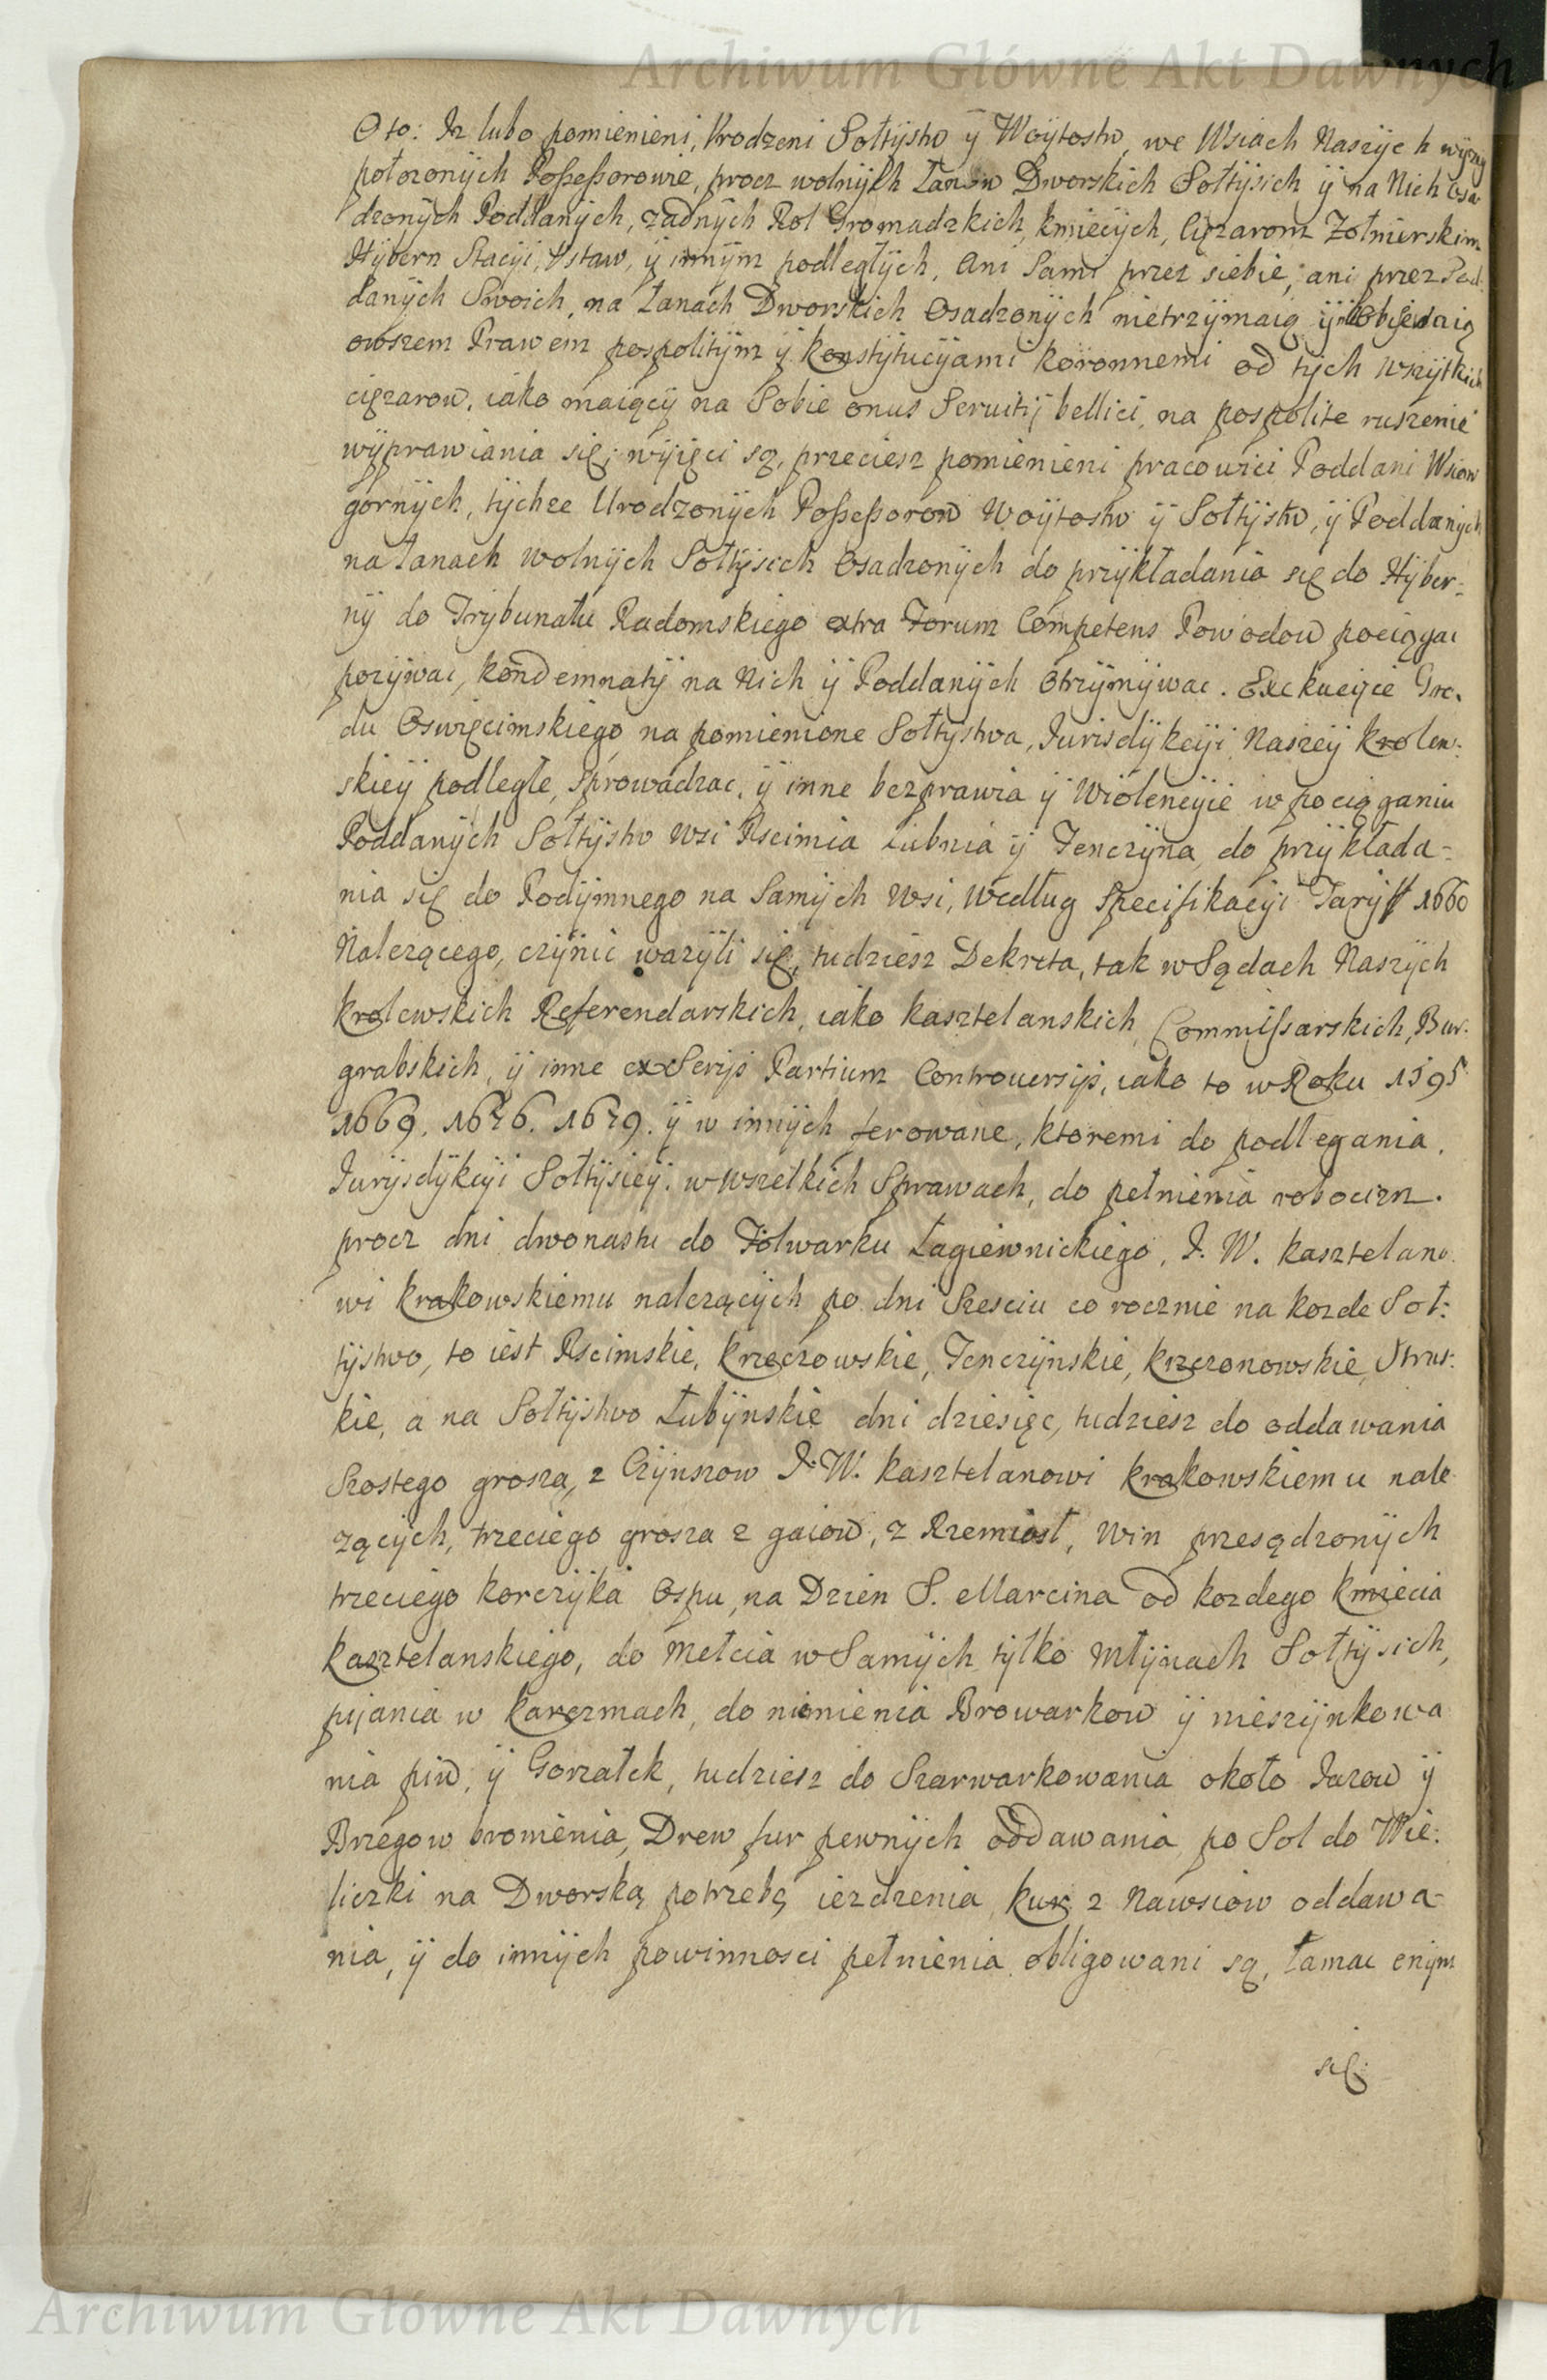 Archiwum Główne Akt Dawnych
Oto: Iz lubo pomienieni, Vrodzeni Sołtystw ÿ Woÿtostw, we Wsiach Naszÿch wÿzeÿ
połozonÿch Possessorowie, procz wolnÿch Łanow Dworskich Sołtÿsich ÿ na Nich Osa
dzonÿch Poddanÿch, zadnÿch Rol Gromadzkich, kmiecÿch, Cięzarom Zołnierskim
Hÿbern Stacÿi, Ustaw, ÿ innÿm podległÿch, Ani Sami przez siebie, ani przez Pod
danÿch Swoich, na Łanach Dworskich Osadzonÿch nietrzÿmaią ÿ
owszem Prawem pospolitÿm ÿ konstÿtucÿami koronnemi od tÿch wszÿtkich
cięzarow, iako maiącÿ na Sobie onus Seruitij bellici, na pospolite ruszenie
wÿprawiania się, wÿięci są, przeciesz pomienieni pracowici Poddani Wsiow
gornÿch, tÿchze Urodzonÿch Possessorow Woÿtostw ÿ Sołtÿstw, ÿ Poddanÿch
na Łanach wolnÿch Sołtÿsich Osadzonÿch do przÿkładania się do Hÿber:
nÿ do Trÿbunału Radomskiego extra Forum Competens Powodow pociągac
pozÿwac, kondemnatÿ na Nich ÿ Poddanÿch Otrzÿmÿwac. Exekucÿie Gro.
du Oswięcimskiego na pomienione Sołtystwa, Iurisdÿkcÿi Naszeÿ krolew:
skieÿ podległe, sprowadzac, ÿ inne bezprawia ÿ Wiolencÿie w pociąganiu
Poddanÿch Sołtÿstw Wsi Pscimia Lubnia ÿ Tenczÿna, do przÿkłada:
nia się do Podÿmnego na Samÿch Wsi, według specifikacÿi Tarÿff 1660
Nalezącego, czÿnic wazÿli się, tudziesz Dekreta, tak w Sądach Naszÿch
krolewskich Referendarskich, iako kasztelanskich, Commissarskich, Bur.
grabskich, ÿ inne ex Serijs Partium Controuersijs, iako to w Roku 1595
1669. 1676. 1679. ÿ w innÿch ferowane, ktoremi do podlegania.
Iurÿsdÿkcÿi Sołtÿsieÿ. w wszelkich Sprawach, do pełnienia robocizn.
procz dni dwonastu do Folwarku Łagiewnickiego, I. W. kasztelano
wi krakowskiemu nalezącÿch po dni Szesciu co rocznie na kozde Soł:
tÿstwo, to iest Pscimskie, krzeczowskie, Tenczÿnskie, krzczonowskie, Strus:
kie, a na Sołtÿstwo Łubÿnskie dni dziesięc, tudziesz do oddawania
Szostego grosza, z Czÿnszow I. W. kasztelanowi krakowskiemu nale
zącÿch, trzeciego grosza z gaiow, z Rzemiosł, Win przesądzonÿch
trzeciego korczÿka Ospu, na Dzien S. Marcina od kozdego kmiecia
kasztelanskiego, do Mełcia w Samÿch tÿlko Młÿnach Sołtÿsich,
pijania w karczmach, do niemienia Browarkow ÿ nieszÿnkowa
nia piw, ÿ Gorzałek, tudziesz do Szarwarkowania około Iazow ÿ
Brzegow bronienia, Drew fur pewnÿch oddawania po Sol do Wie:
liczki na Dworską potrzebę iezdzenia, kur z Nawsiow oddawa-
nia, ÿ do innÿch powinnosci pełnienia obligowani są, łamac
się
Archiwum Główne Akt Dawnych